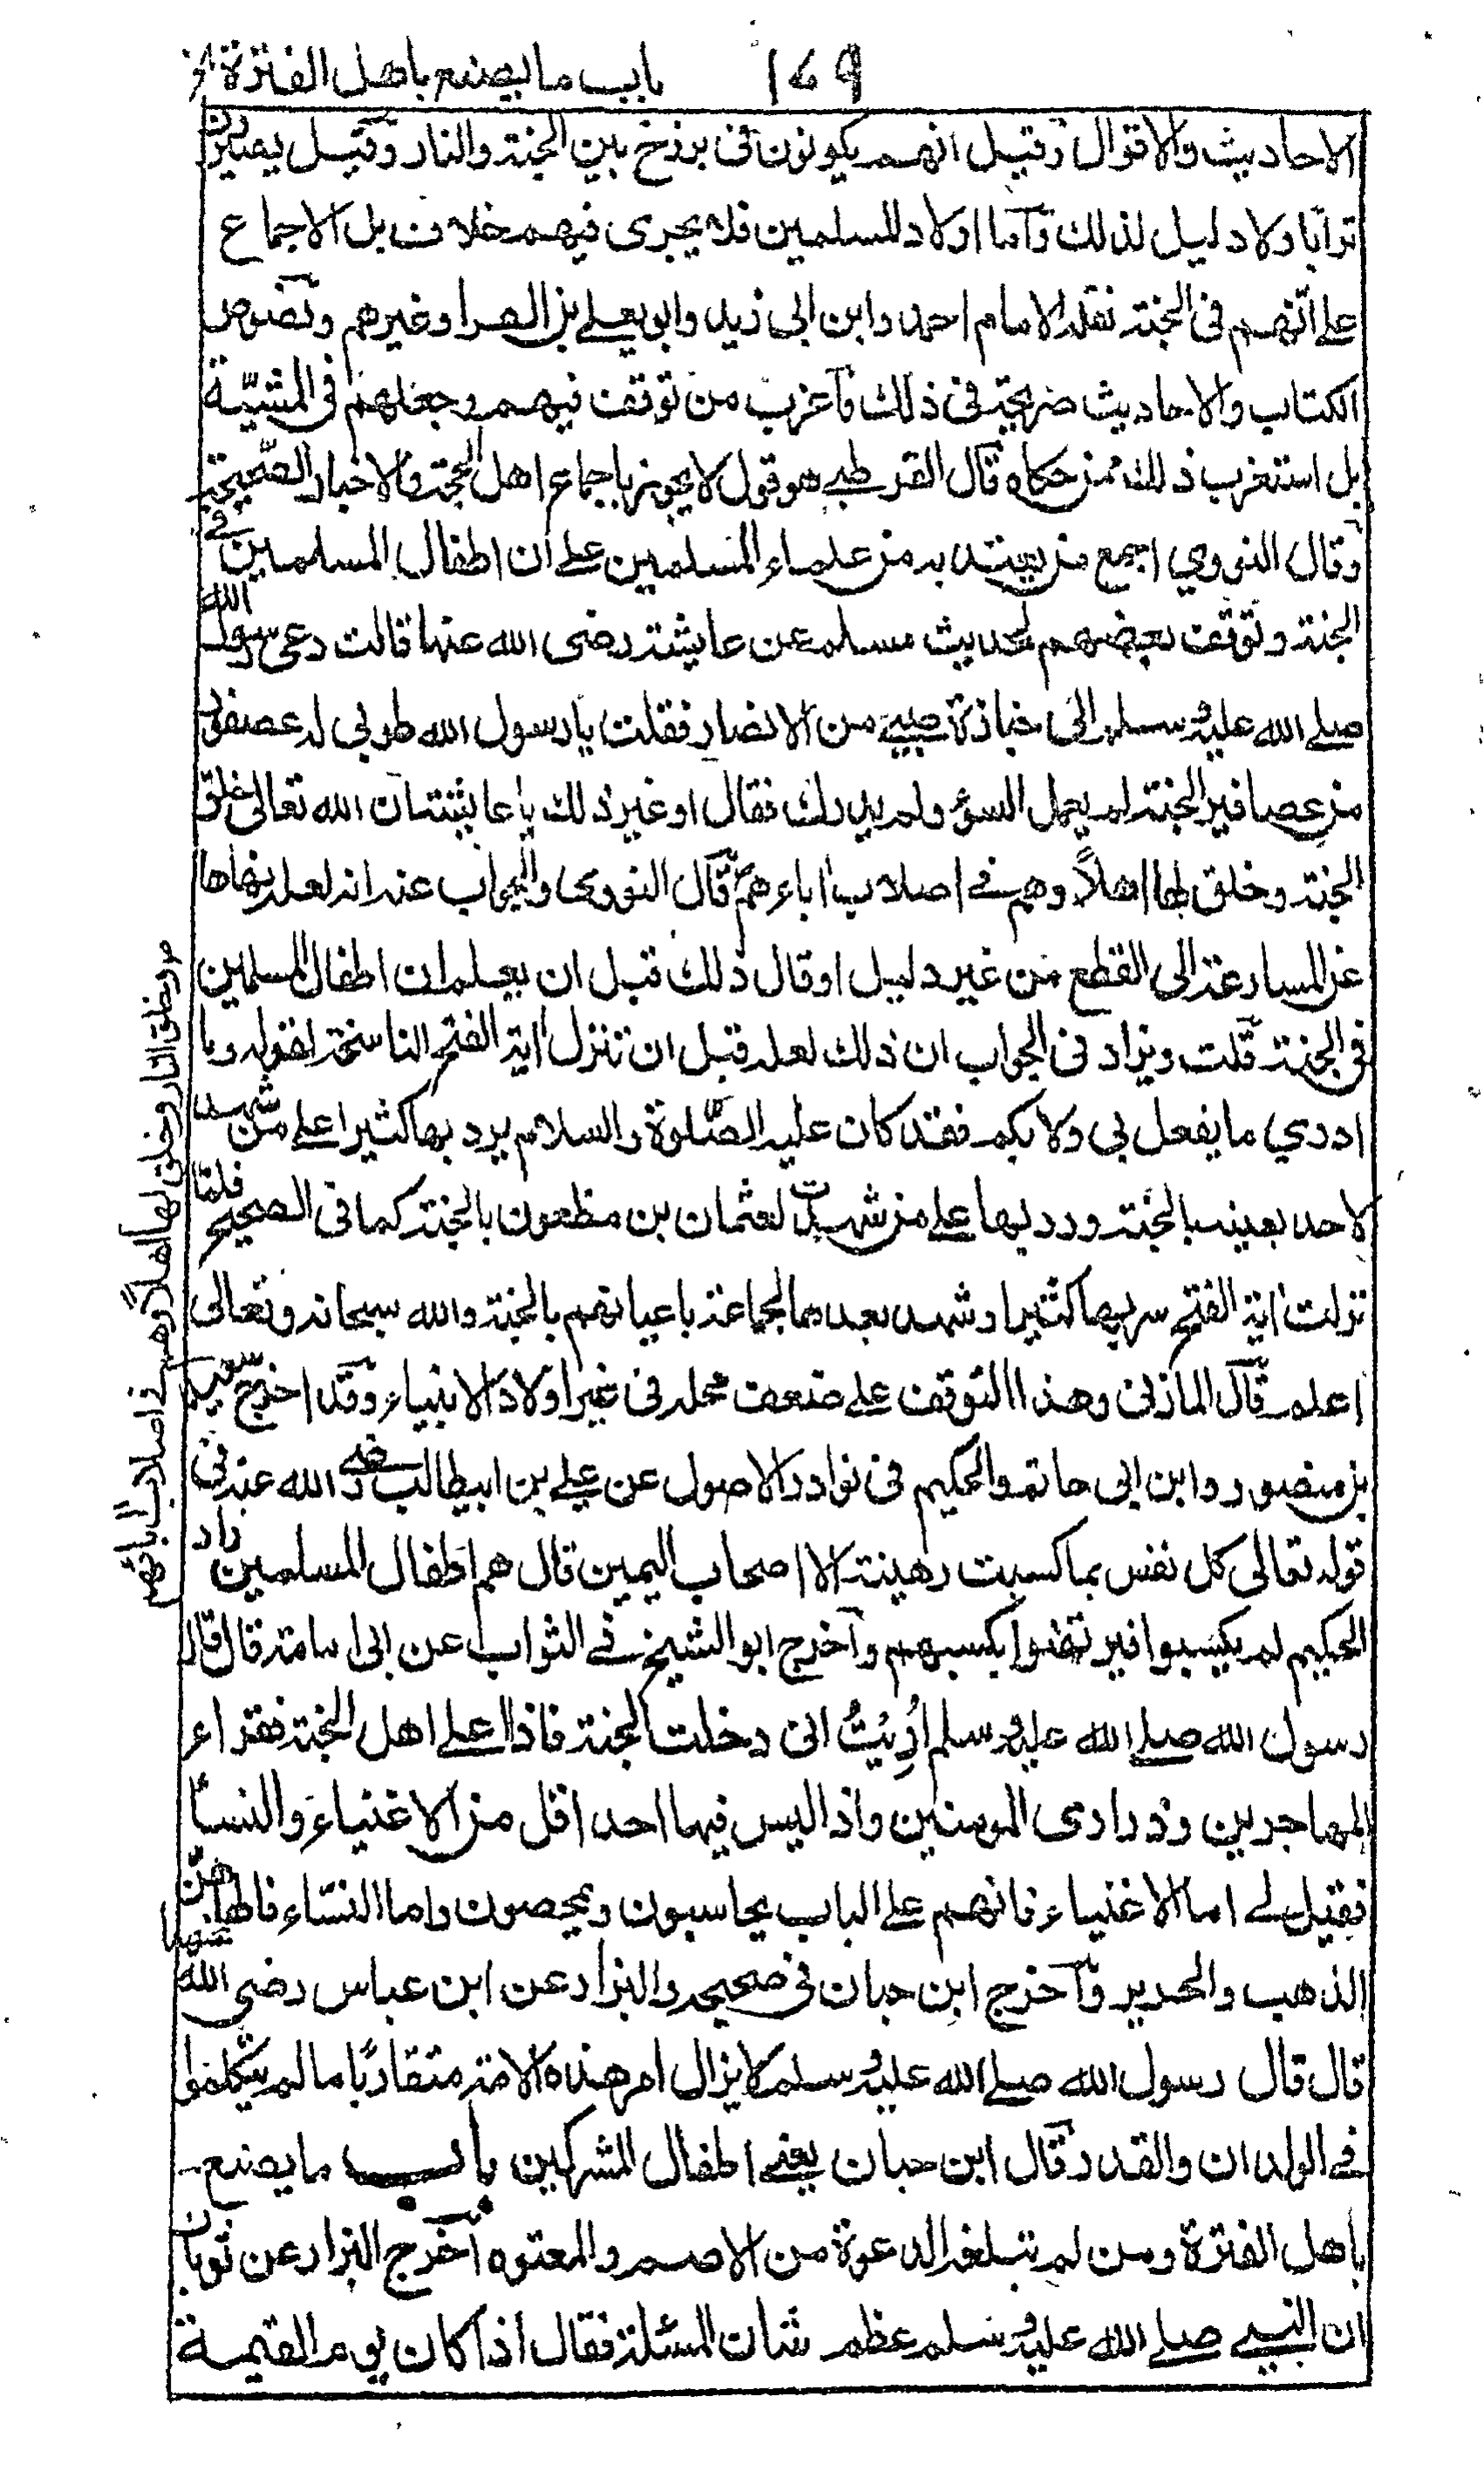 باب ما يصنع باهل الفترة الخ ١٤٩
الاحاديث والاقوال وقيل انهم يكونون فى برزخ بين الجنة والنار وقيل يصيرون
ترابا ولا دليل لذلك وآما اولاد المسلمين فلا يجرى فيهم خلاف بل الاجماع
على انّهم فى الجنة نقله الامام احمد وابن ابى زيد وابو يعلے بن الفرا وغيرهم ونصوص
الكتاب والاحاديث صريحة فى ذلك وآغرب من توقف فيهم وجعلهم فى المشيّة
بل استغرب ذلك ممن حكاه قآل القرطبے هو قول لا يجوز باجماع اهل الحجة والاخبار الصّحيحة
وقال النووي اجمع من يعتد به من علماء المسلمين علے ان اطفال المسلمين فے
الجنة وتوقف بعضهم لحديث مسلم عن عايشة رضى الله عنها قالت دعى رسول الله
صلے الله عليه وسلم الى جنازة صبے من الانصار فقلت يا رسول الله طوبى له عصفور
من عصافير الجنة لم يعمل السوٓء ولم يدرك فقال او غير ذلك يا عايشة ان الله تعالى خلق
الجنة وخلق لها اهلاً وهم فے اصلاب اٰباءهم قآل النووى والجواب عنه انه لعله نهاها
عن المسارعة الى القطع من غير دليل او قال ذلك قبل ان يعلم ان اطفال المسلمين
فى الجنة قلت ويزاد فى الجواب ان ذلك لعله قبل ان تنزل اٰية الفتح الناسخة لقوله وما
ادري ما يفعل بى ولا بكم فقد كان عليه الصّلوة والسلام يرد بها كثيرا علے من شهد
لاحد بعينه بالجنة ورد بها علے من شهدت لعثمان بن مظعون بالجنة كما فى الصحيح فلمّا
نزلت اٰية الفتح سر بها كثيرا وشهد بعدها لجماعة باعيانهم بالجنة والله سبحانه وتعالى
اعلم قآل المازنى وهذا التوقف علے ضعف محله فى غير اولاد الانبياء وقد اخرج سعيد
بن منصور وابن ابى حاتم والحكيم فى نوادر الاصول عن علے بن ابيطالب رضے الله عنه فى
قوله تعالى كل نفس بما كسبت رهينة الا اصحاب اليمين قال هم اطفال المسلمين زاد
الحكيم لم يكسبوا فيرتهنوا بكسبهم وآخرج ابو الشيخ فے الثواب عن ابى امامة قال قال
رسول الله صلے الله عليه وسلم اُرِيْتُ انى دخلت الجنة فاذا اعلے اهل الجنة فقراء
المهاجرين وذرارى المومنين واذا ليس فيها احد اقل من الاغنياء والنسا
فقيل لے اما الاغنياء فانهم علے الباب يحاسبون ويمحصون واما النسّاء فالهاهن
الذهب والحرير وآخرج ابن حبان فى صحيحه والبزار عن ابن عباس رضى الله عنهما
قال قال رسول الله صلے الله عليه وسلم لا يزال امر هذه الامة متقاربًا ما لم يتكلموا
فے الولدان والقدر قآل ابن حبان يعنے اطفال المشركين باب ما يصنع
باهل الفترة ومن لم تبلغه الدعوة من الاصم والمعتوه آخرج البزار عن ثوبان
ان النبے صلے الله عليه وسلم عظم شان المسئلة فقال اذا كان يوم القيمة
وخلق النار وخلق لها اهلاً وهم فے اصلاب اٰبائهم